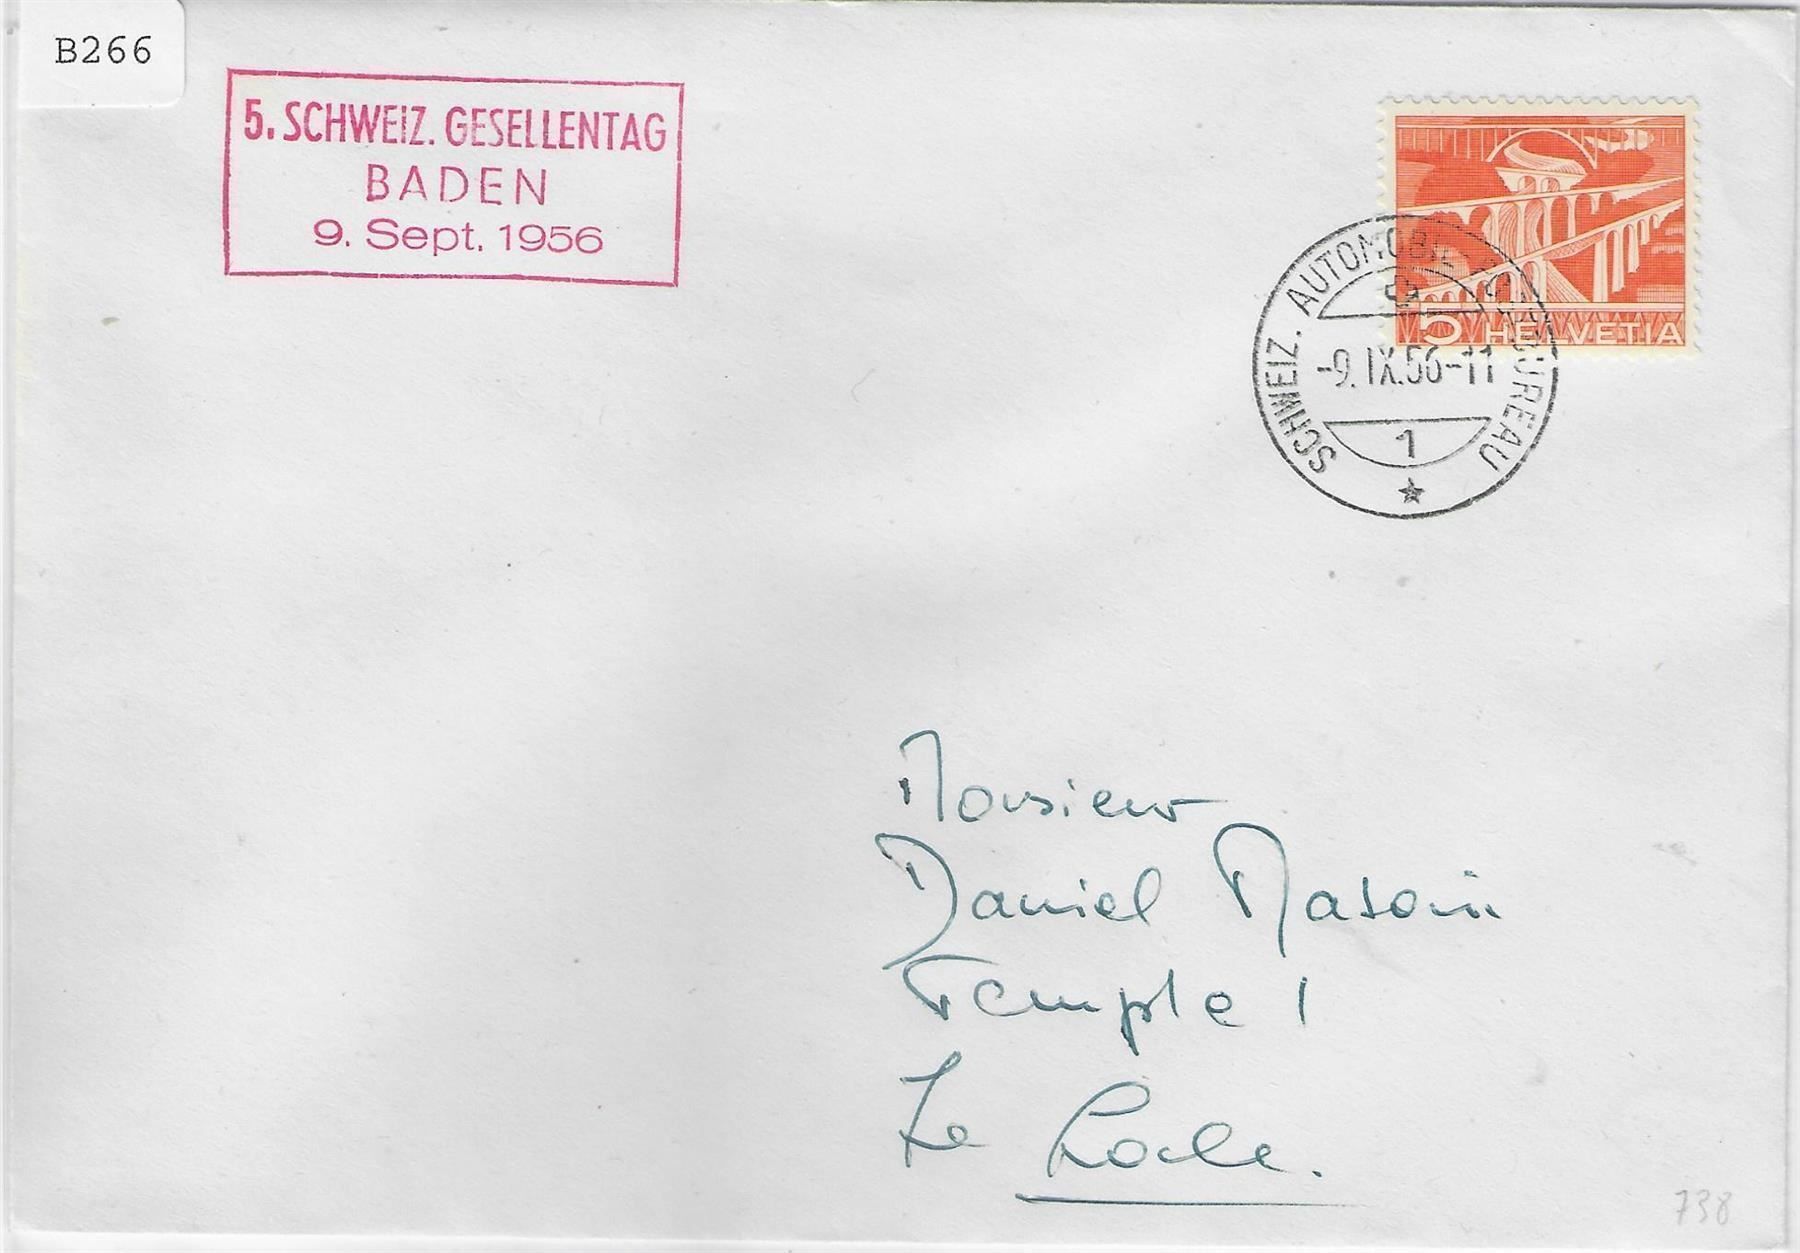 B266
5. SCHWEIZ. GESELLENTAG
BADEN
9. Sept. 1956
5 HELVETIA
SCHWEIZ. AUTOMOBIL-POSTBUREAU
-9.IX.56-11
1
Monsieur
Daniel
Temple 1
Le Locle.
738